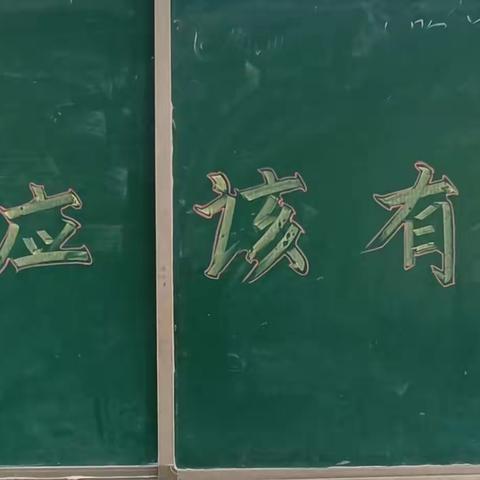 应该有